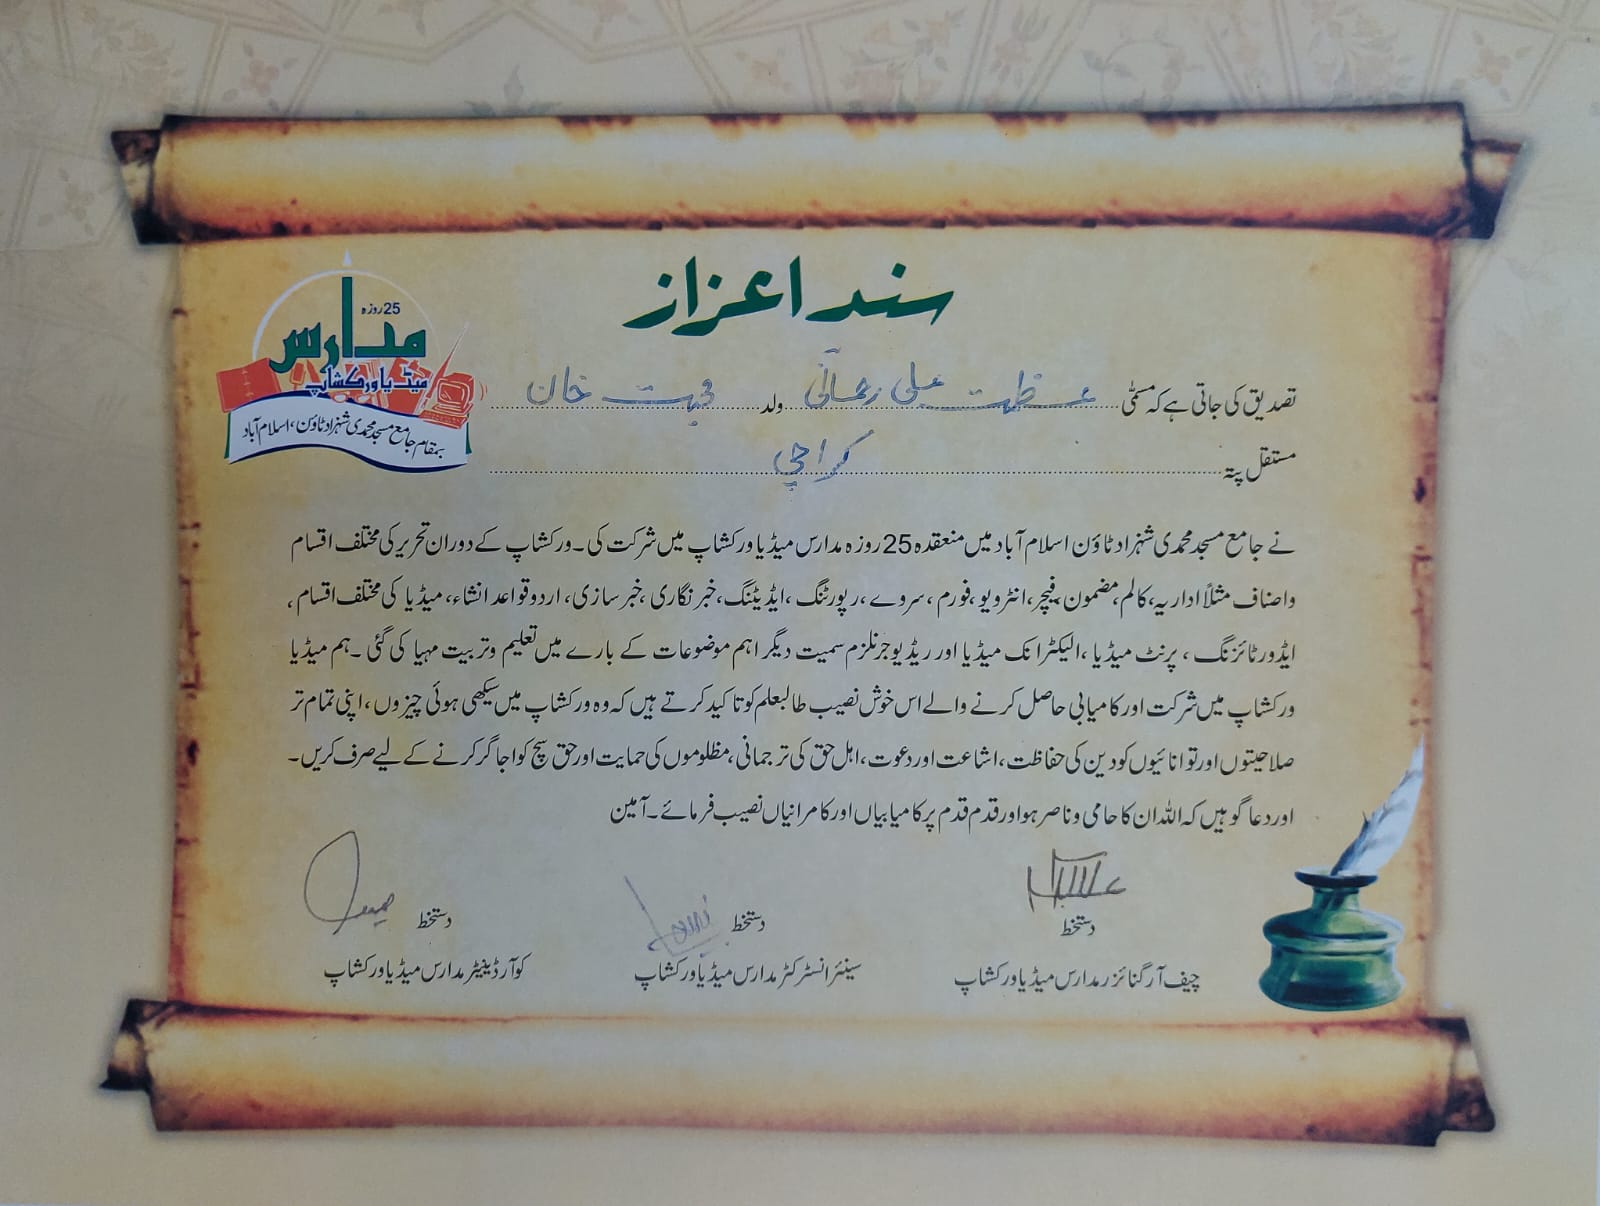 سند اعزاز
25 روزہ
مدارس
میڈیا ورکشاپ
بمقام جامع مسجد محمدی شہزاد ٹاؤن، اسلام آباد
تصدیق کی جاتی ہے کہ مسمّٰی عظمت علی رحمانی ولد محبت خان
مستقل پتہ کراچی
نے جامع مسجد محمدی شہزاد ٹاؤن اسلام آباد میں منعقدہ 25 روزہ مدارس میڈیا ورکشاپ میں شرکت کی۔ ورکشاپ کے دوران تحریر کی مختلف اقسام
واصناف مثلاً اداریہ، کالم، مضمون، فیچر، انٹرویو، فورم، سروے، رپورٹنگ، ایڈیٹنگ، خبرنگاری، خبرسازی، اردو قواعد انشاء، میڈیا کی مختلف اقسام،
ایڈورٹائزنگ، پرنٹ میڈیا، الیکٹرانک میڈیا اور ریڈیو جرنلزم سمیت دیگر اہم موضوعات کے بارے میں تعلیم وتربیت مہیا کی گئی۔ ہم میڈیا
ورکشاپ میں شرکت اور کامیابی حاصل کرنے والے اس خوش نصیب طالبعلم کو تاکید کرتے ہیں کہ وہ ورکشاپ میں سیکھی ہوئی چیزوں، اپنی تمام تر
صلاحیتوں اور توانائیوں کو دین کی حفاظت، اشاعت اور دعوت، اہل حق کی ترجمانی، مظلوموں کی حمایت اور حق سچ کو اجاگر کرنے کے لیے صرف کریں۔
اور دعا گو ہیں کہ اللہ ان کا حامی وناصر ہو اور قدم قدم پر کامیابیاں اور کامرانیاں نصیب فرمائے۔ آمین
دستخط دستخط دستخط
چیف آرگنائزر مدارس میڈیا ورکشاپ سینئر انسٹرکٹر مدارس میڈیا ورکشاپ کوآرڈینیٹر مدارس میڈیا ورکشاپ